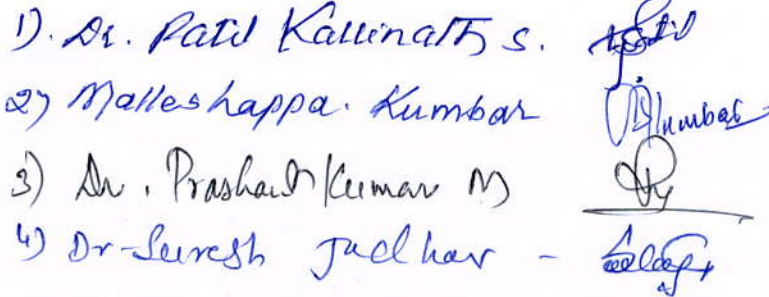 1). Dr. Patil Kallinath S.
2) Malleshappa. Kumbar Kumbar
3) Dr. Prashant Kumar M
4) Dr-Suresh Jadhav -